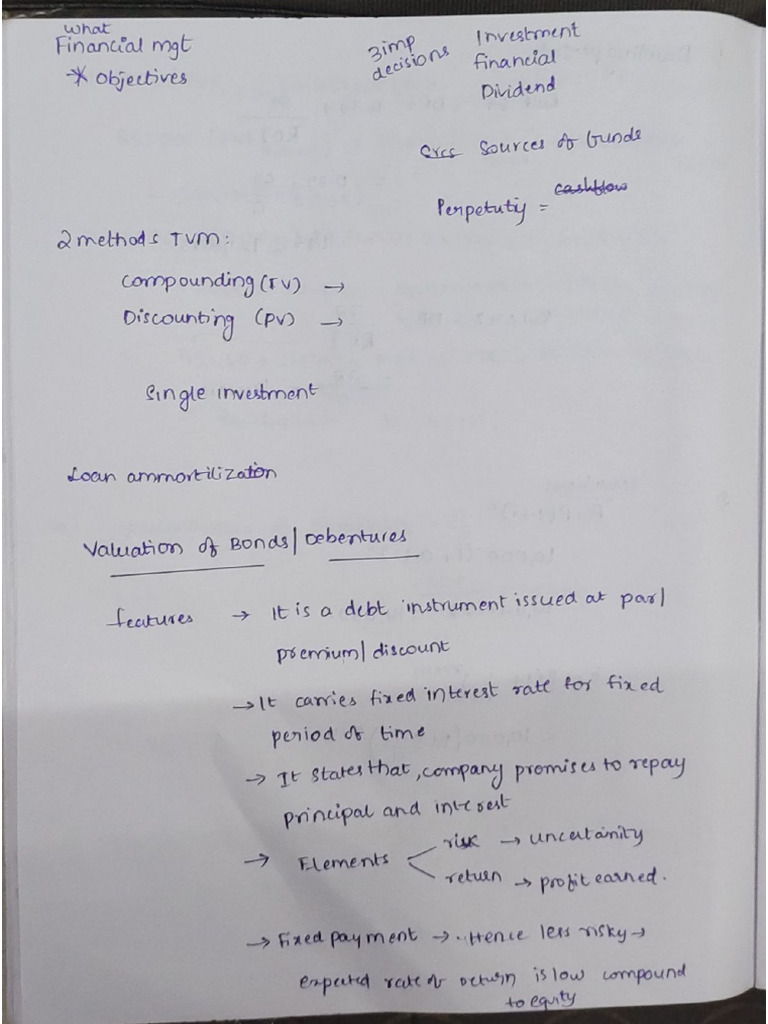 What
Financial mgt
* Objectives
3imp
decisions
Investment
financial
Dividend
Srcs Sources of funds
Perpetutiy = cashflow
2 methods TVM:
Compounding (FV) →
Discounting (PV) →
Single investment
Loan ammortilization
Valuation of Bonds/ Debentures
features → It is a debt instrument issued at par/
premium/ discount
→ It carries fixed interest rate for fixed
period of time
→ It states that, company promises to repay
principal and interest
→ Elements
risk → uncertainity
return → profit earned.
→ Fixed payment → . Hence less risky →
expected rate of return is low compound
to equity